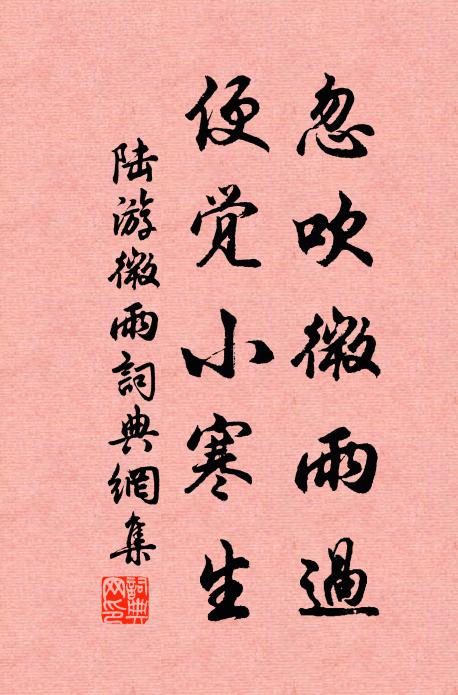 忽吹微雨過
便觉小寒生
陆游微雨詞典網集
詞典網印